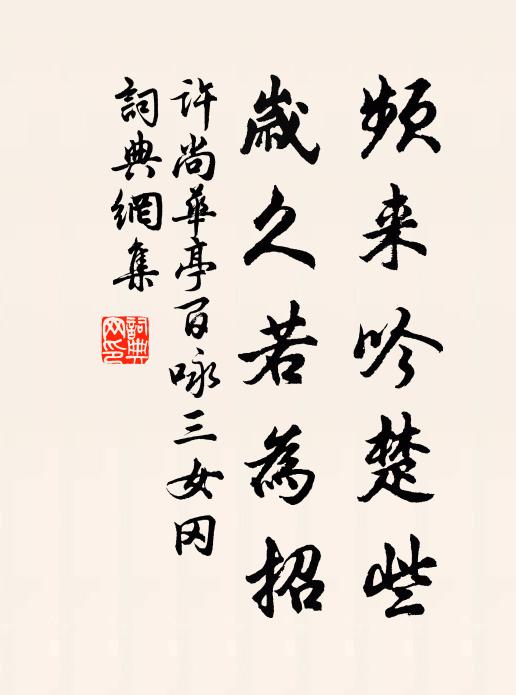 频来吟楚些
歳久若為招
許尚華亭百咏三女冈
詞典網集
詞典网印